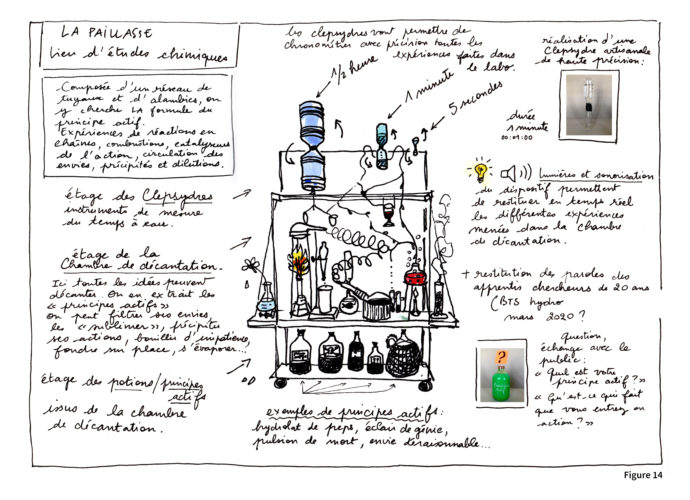 LA PAILLASSE
Lieu d'études chimiques
Composée d'un réseau de
tuyaux et d'alambics, on
y cherche LA formule du
principe actif.
Expériences de réactions en
chaînes, combustions, catalyseurs
de l'action, circulation des
envies, précipités et dilutions.
les clepsydres vont permettre de
chronométrer avec précision toutes les
expériences faites dans
le labo.
1/2 heure
1 minute
5 secondes
réalisation d'une
Clepsydre artisanale
de haute précision:
durée
1 minute
00:01:00
étage des Clepsydres
instruments de mesure
du temps à eau.
étage de la
Chambre de décantation.
Ici toutes les idées peuvent
décanter. On en extrait les
« principes actifs »
On peut filtrer ses envies,
les « sublimer », précipiter
ses actions, bouillir d'impatience,
fondre sur place, s'évaporer...
étage des potions/principes
actifs
issus de la chambre
de décantation.
Lumières et sonorisation
du dispositif permettent
de restituer en temps réel
les différentes expériences
menées dans la chambre
de décantation.
+ restitution des paroles des
apprentis chercheurs de 20 ans
(BTS hydro
mars 2020 ?
?
Question,
échange avec le
public:
« Quel est votre
principe actif ? »
« Qu'est-ce qui fait
que vous entrez en
action ? »
exemples de principes actifs:
hydrolat de peps, éclair de génie,
pulsion de mort, envie déraisonnable...
Figure 14